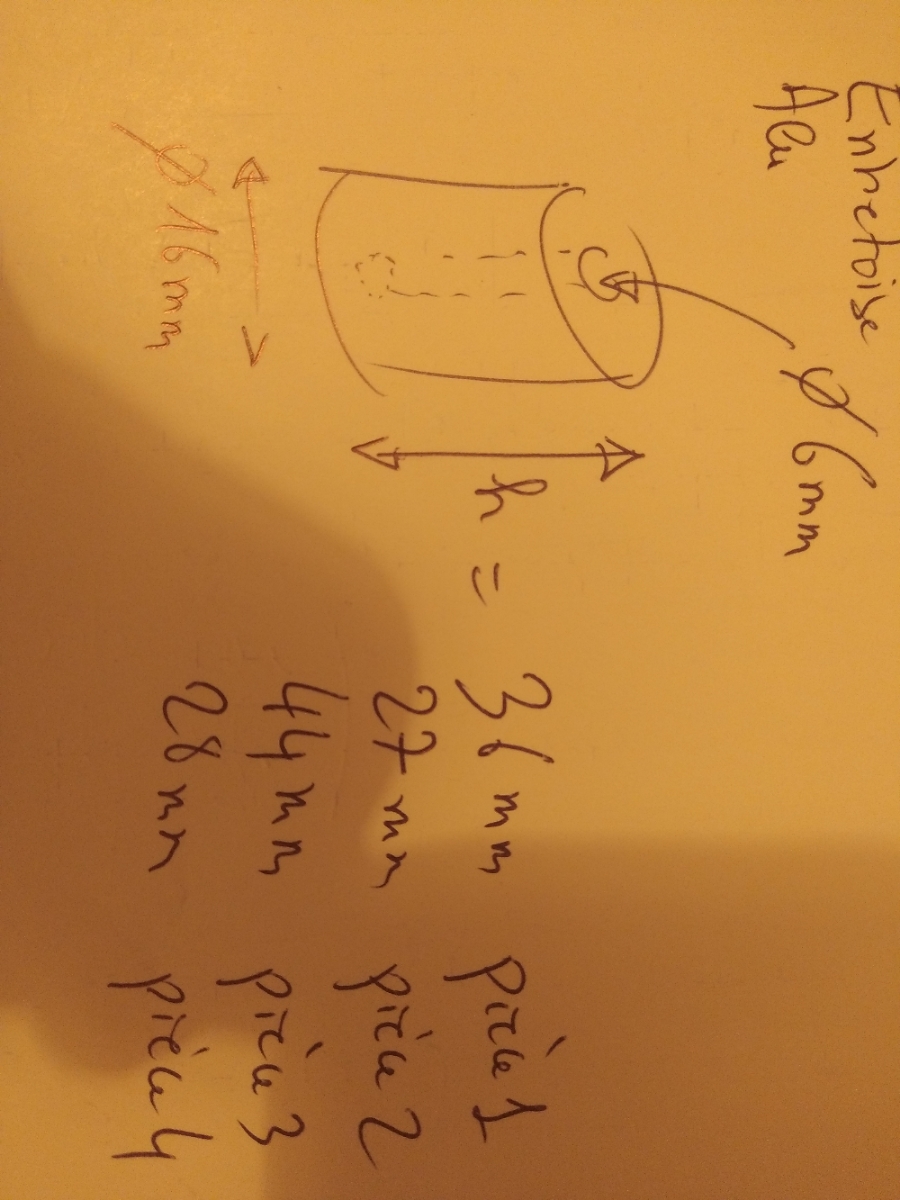 Entretoise
Alu
Ø 6mm
Ø 16mm
h = 36mm pièce 1
27mm pièce 2
44mm pièce 3
28mm pièce 4